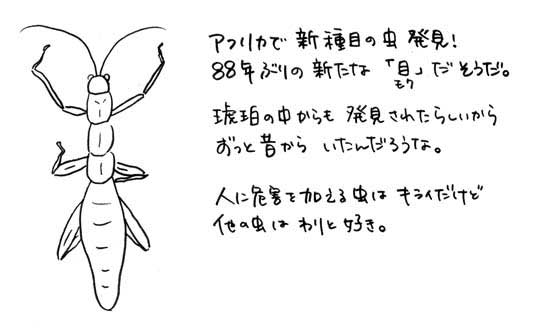 アフリカで新種目の虫発見!
88年ぶりの新たな「目」だそうだ。
もく
琥珀の中からも発見されたらしいから
ずっと昔からいたんだろうな。
人に危害を加える虫はキライだけど
他の虫はわりと好き。